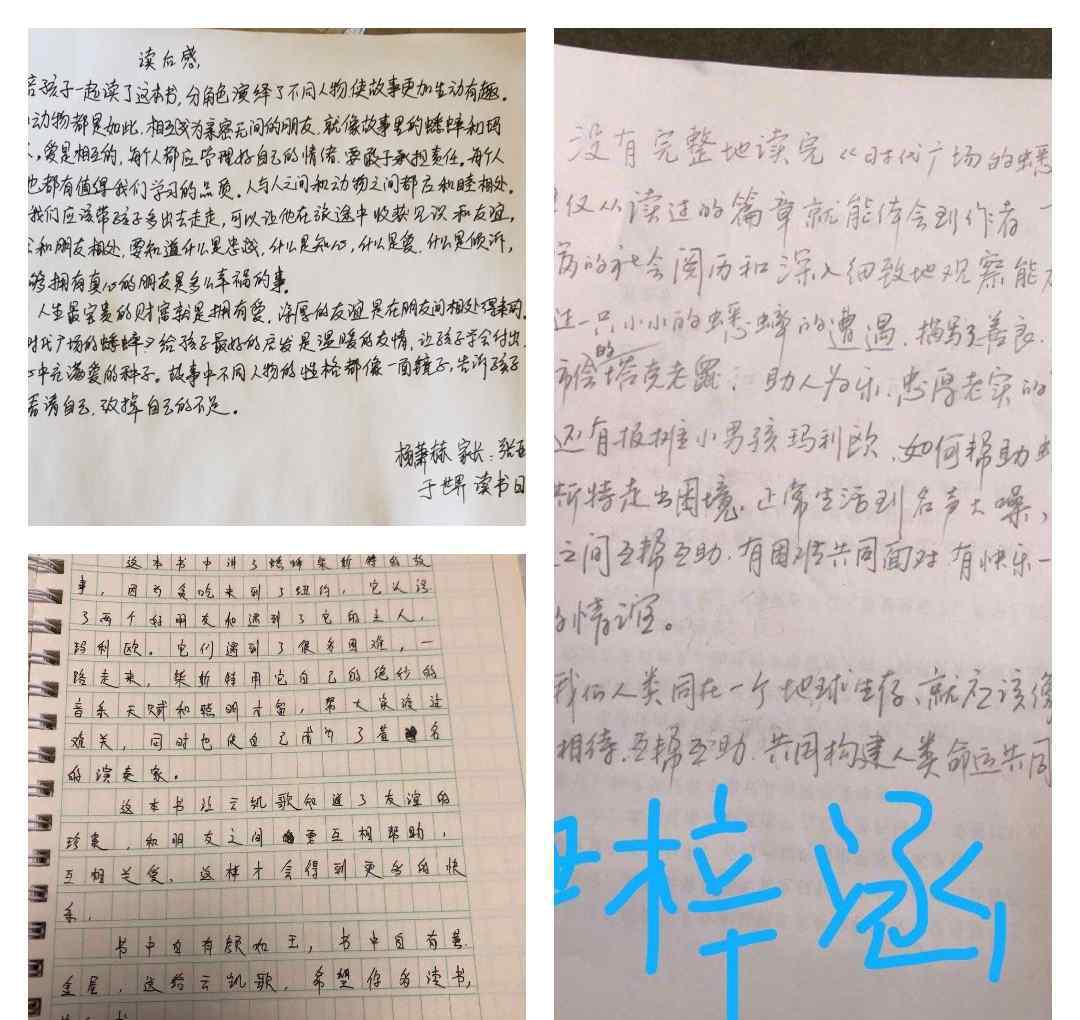 读后感
陪孩子一起读了这本书,分角色演绎了不同人物使故事更加生动有趣。
动物都是如此,相互成为亲密无间的朋友,就像故事里的蟋蟀和玛
,爱是相互的,每个人都应管理好自己的情绪,要敢于承担责任,每个人
也都有值得我们学习的品质。人与人之间和动物之间都应和睦相处。
我们应该带孩子多出去走走,可以让他在旅途中收获见识和友谊,
和朋友相处,要知道什么是忠诚,什么是知心,什么是爱,什么是倾诉,
够拥有真心的朋友是多么幸福的事。
人生最宝贵的财富就是拥有爱,深厚的友谊是在朋友间相处得来的。
时代广场的蟋蟀》给孩子最好的启发是温暖的友情,让孩子学会付出
中充满爱的种子。故事中不同人物的性格都像一面镜子,告诉孩子
看清自己,改掉自己的不足。
家长:张
于世界读书日
这本书中讲了蟋蟀柴斯特的故
事,因为爱吃来到了纽约,它认识
了两个好朋友和遇到了它的主人,
玛利欧。它们遇到了很多困难,一
路走来,柴斯特用它自己的绝妙的
音乐天赋和聪明才智,帮大家渡过
难关,同时也使自己成为了著名
的演奏家。
这本书让云凯歌知道了友谊的
珍贵,和朋友之间要互相帮助,
互相关爱,这样才会得到更多的快
乐,
书中自有颜如玉,书中自有黄
金屋,送给云凯歌,希望你多读书,
没有完整地读完《时代广场的蟋
仅从读过的篇章就能体会到作者
的社会阅历和深入细致地观察能力
一只小小的蟋蟀的遭遇,描写了善良、
市侩的塔克老鼠、助人为乐、忠厚老实的
还有报摊小男孩玛利欧、如何帮助
斯特走出困境,正常生活到名声大噪,
之间互帮互助,有困难共同面对,有快乐一
的情谊。
我们人类同在一个地球生存、就应该像
相待,互帮互助,共同构建人类命运共同
梓涵